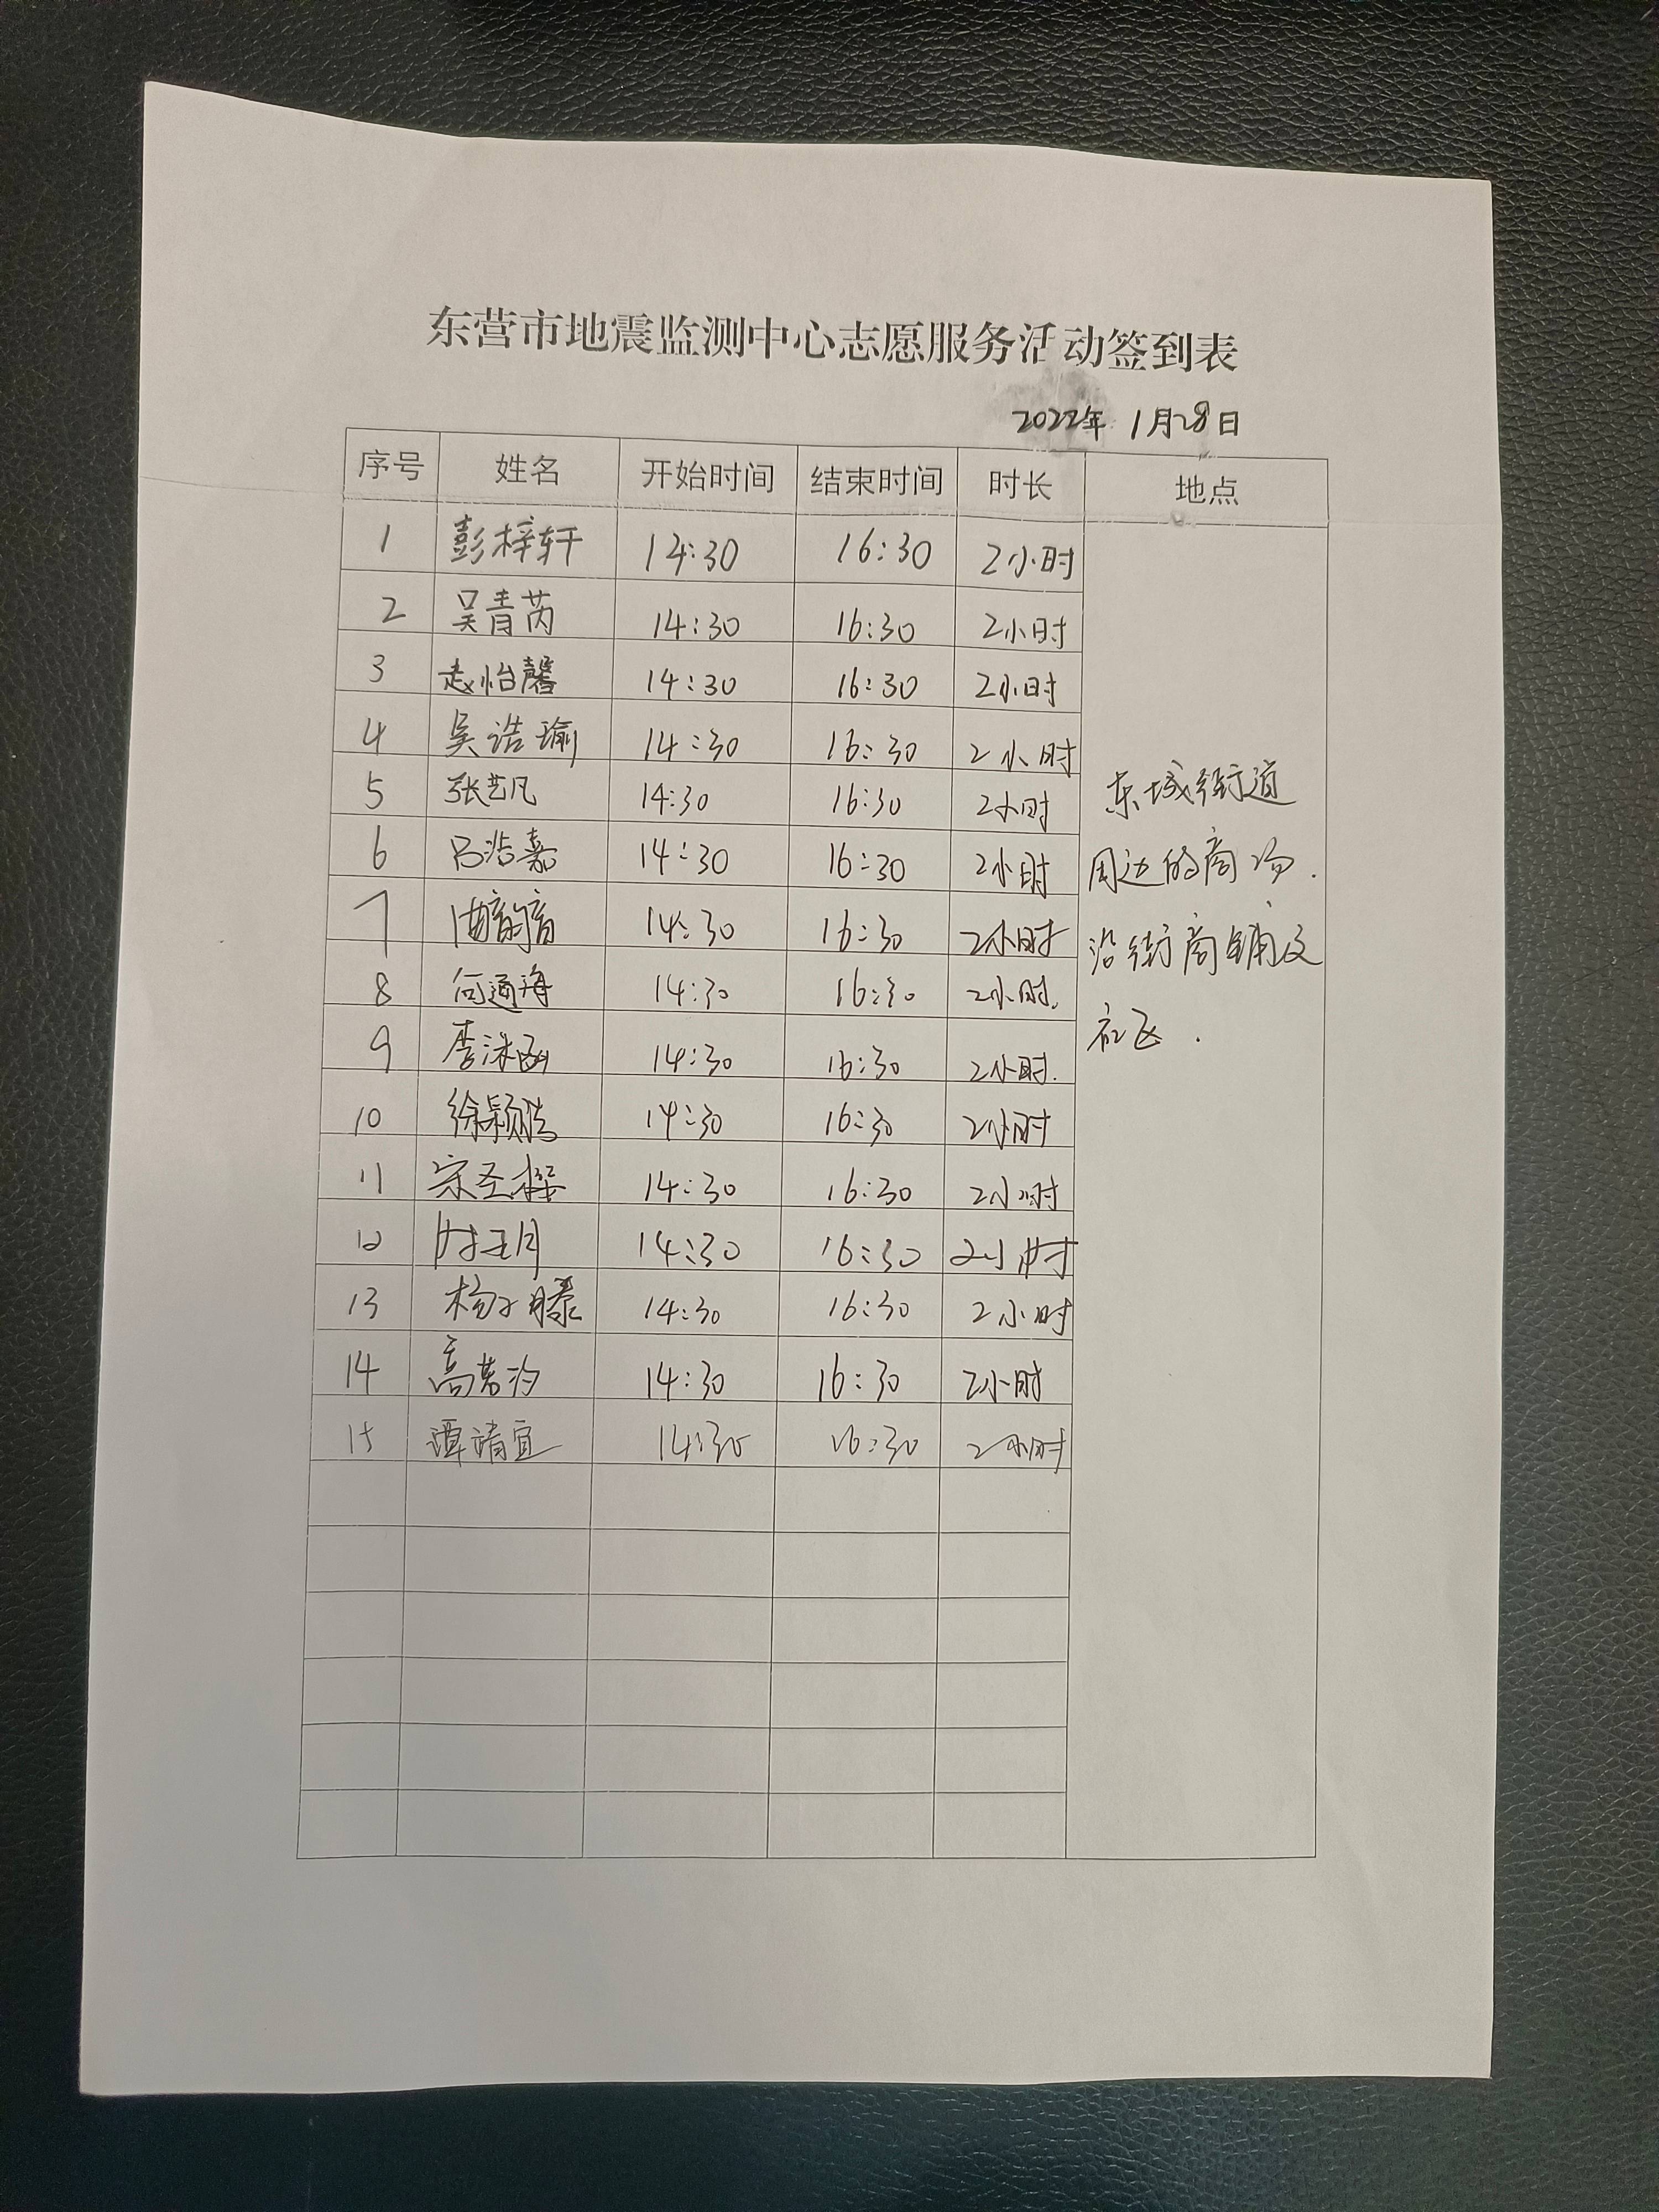 东营市地震监测中心志愿服务活动签到表
2022年 1月28日
序号 姓名 开始时间 结束时间 时长 地点
1 彭梓轩 14:30 16:30 2小时
2 吴青芮 14:30 16:30 2小时
3 赵怡馨 14:30 16:30 2小时
4 吴浩瑜 14:30 16:30 2小时
5 张艺凡 14:30 16:30 2小时
6 吕浩嘉 14:30 16:30 2小时
7 14:30 16:30 2小时
8 何通海 14:30 16:30 2小时.
9 李沐函 14:30 16:30 2小时.
10 徐颖浩 14:30 16:30 2小时
11 宗圣 14:30 16:30 2小时
12 14:30 16:30 2小时
13 杨子滕 14:30 16:30 2小时
14 高若汐 14:30 16:30 2小时
15 谭靖宜 14:30 16:30 2小时
东城街道
周边的商场.
沿街商铺及
社区.